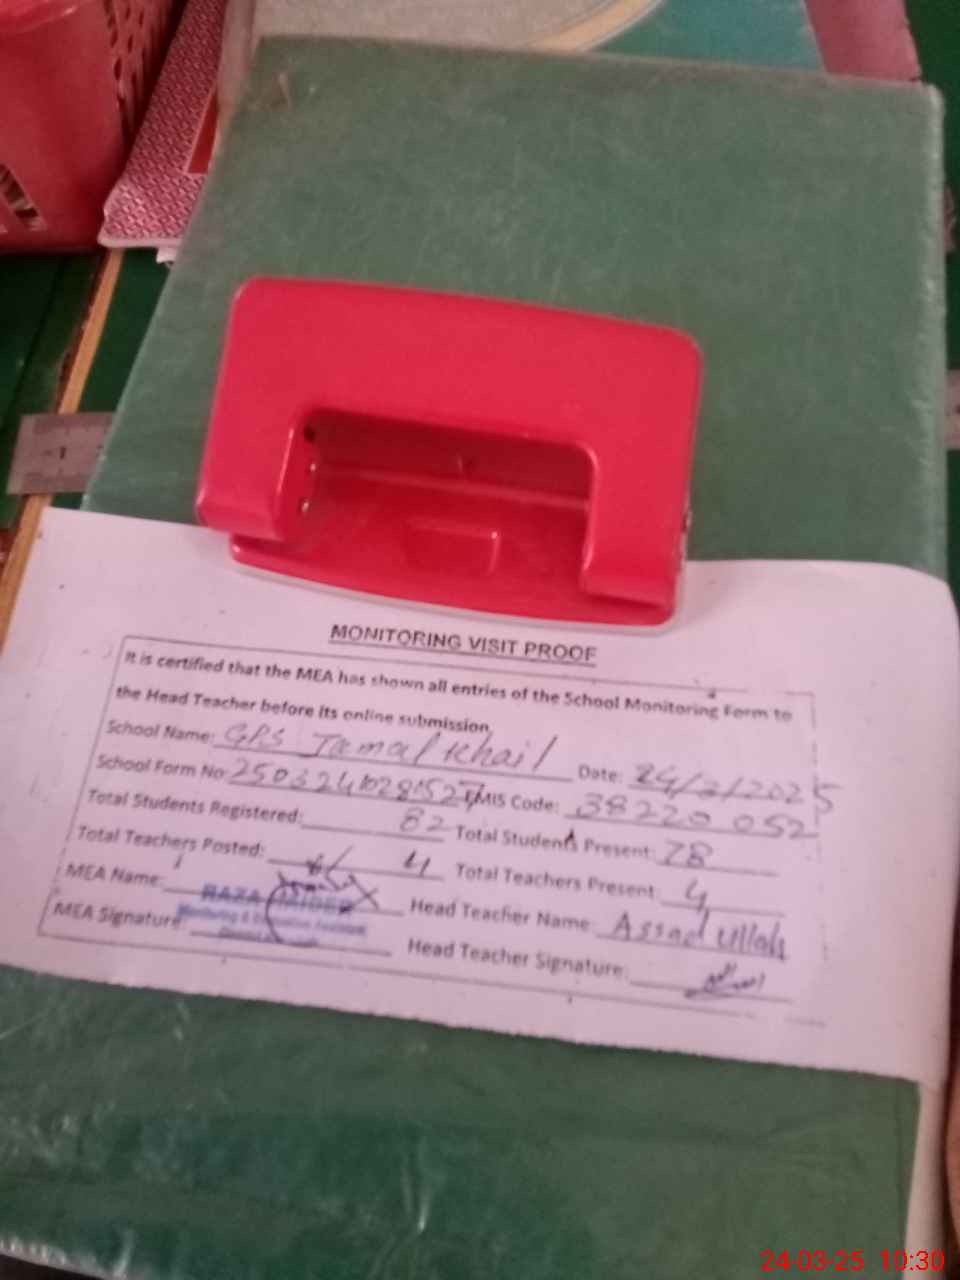 MONITORING VISIT PROOF
It is certified that the MEA has shown all entries of the School Monitoring Form to
the Head Teacher before its online submission.
School Name: GPS Jamal Khail Date: 24/3/2025
School Form No: EMIS Code: 38220 052
Total Students Registered: 82 Total Students Present: 78
Total Teachers Posted: 4 Total Teachers Present: 4
MEA Name: RAZA HAIDER Head Teacher Name: Assad Ullah
MEA Signature: Head Teacher Signature:
24-03-25 10:30